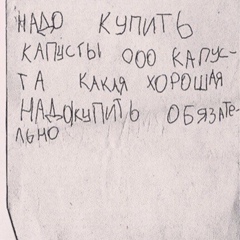 НАДО КУПИТЬ
КАПУСТЫ ООО КАПУС-
ТА КАКАЯ ХОРОШАЯ
НАДО КУПИТЬ ОБЯЗАТЕ-
ЛЬНО